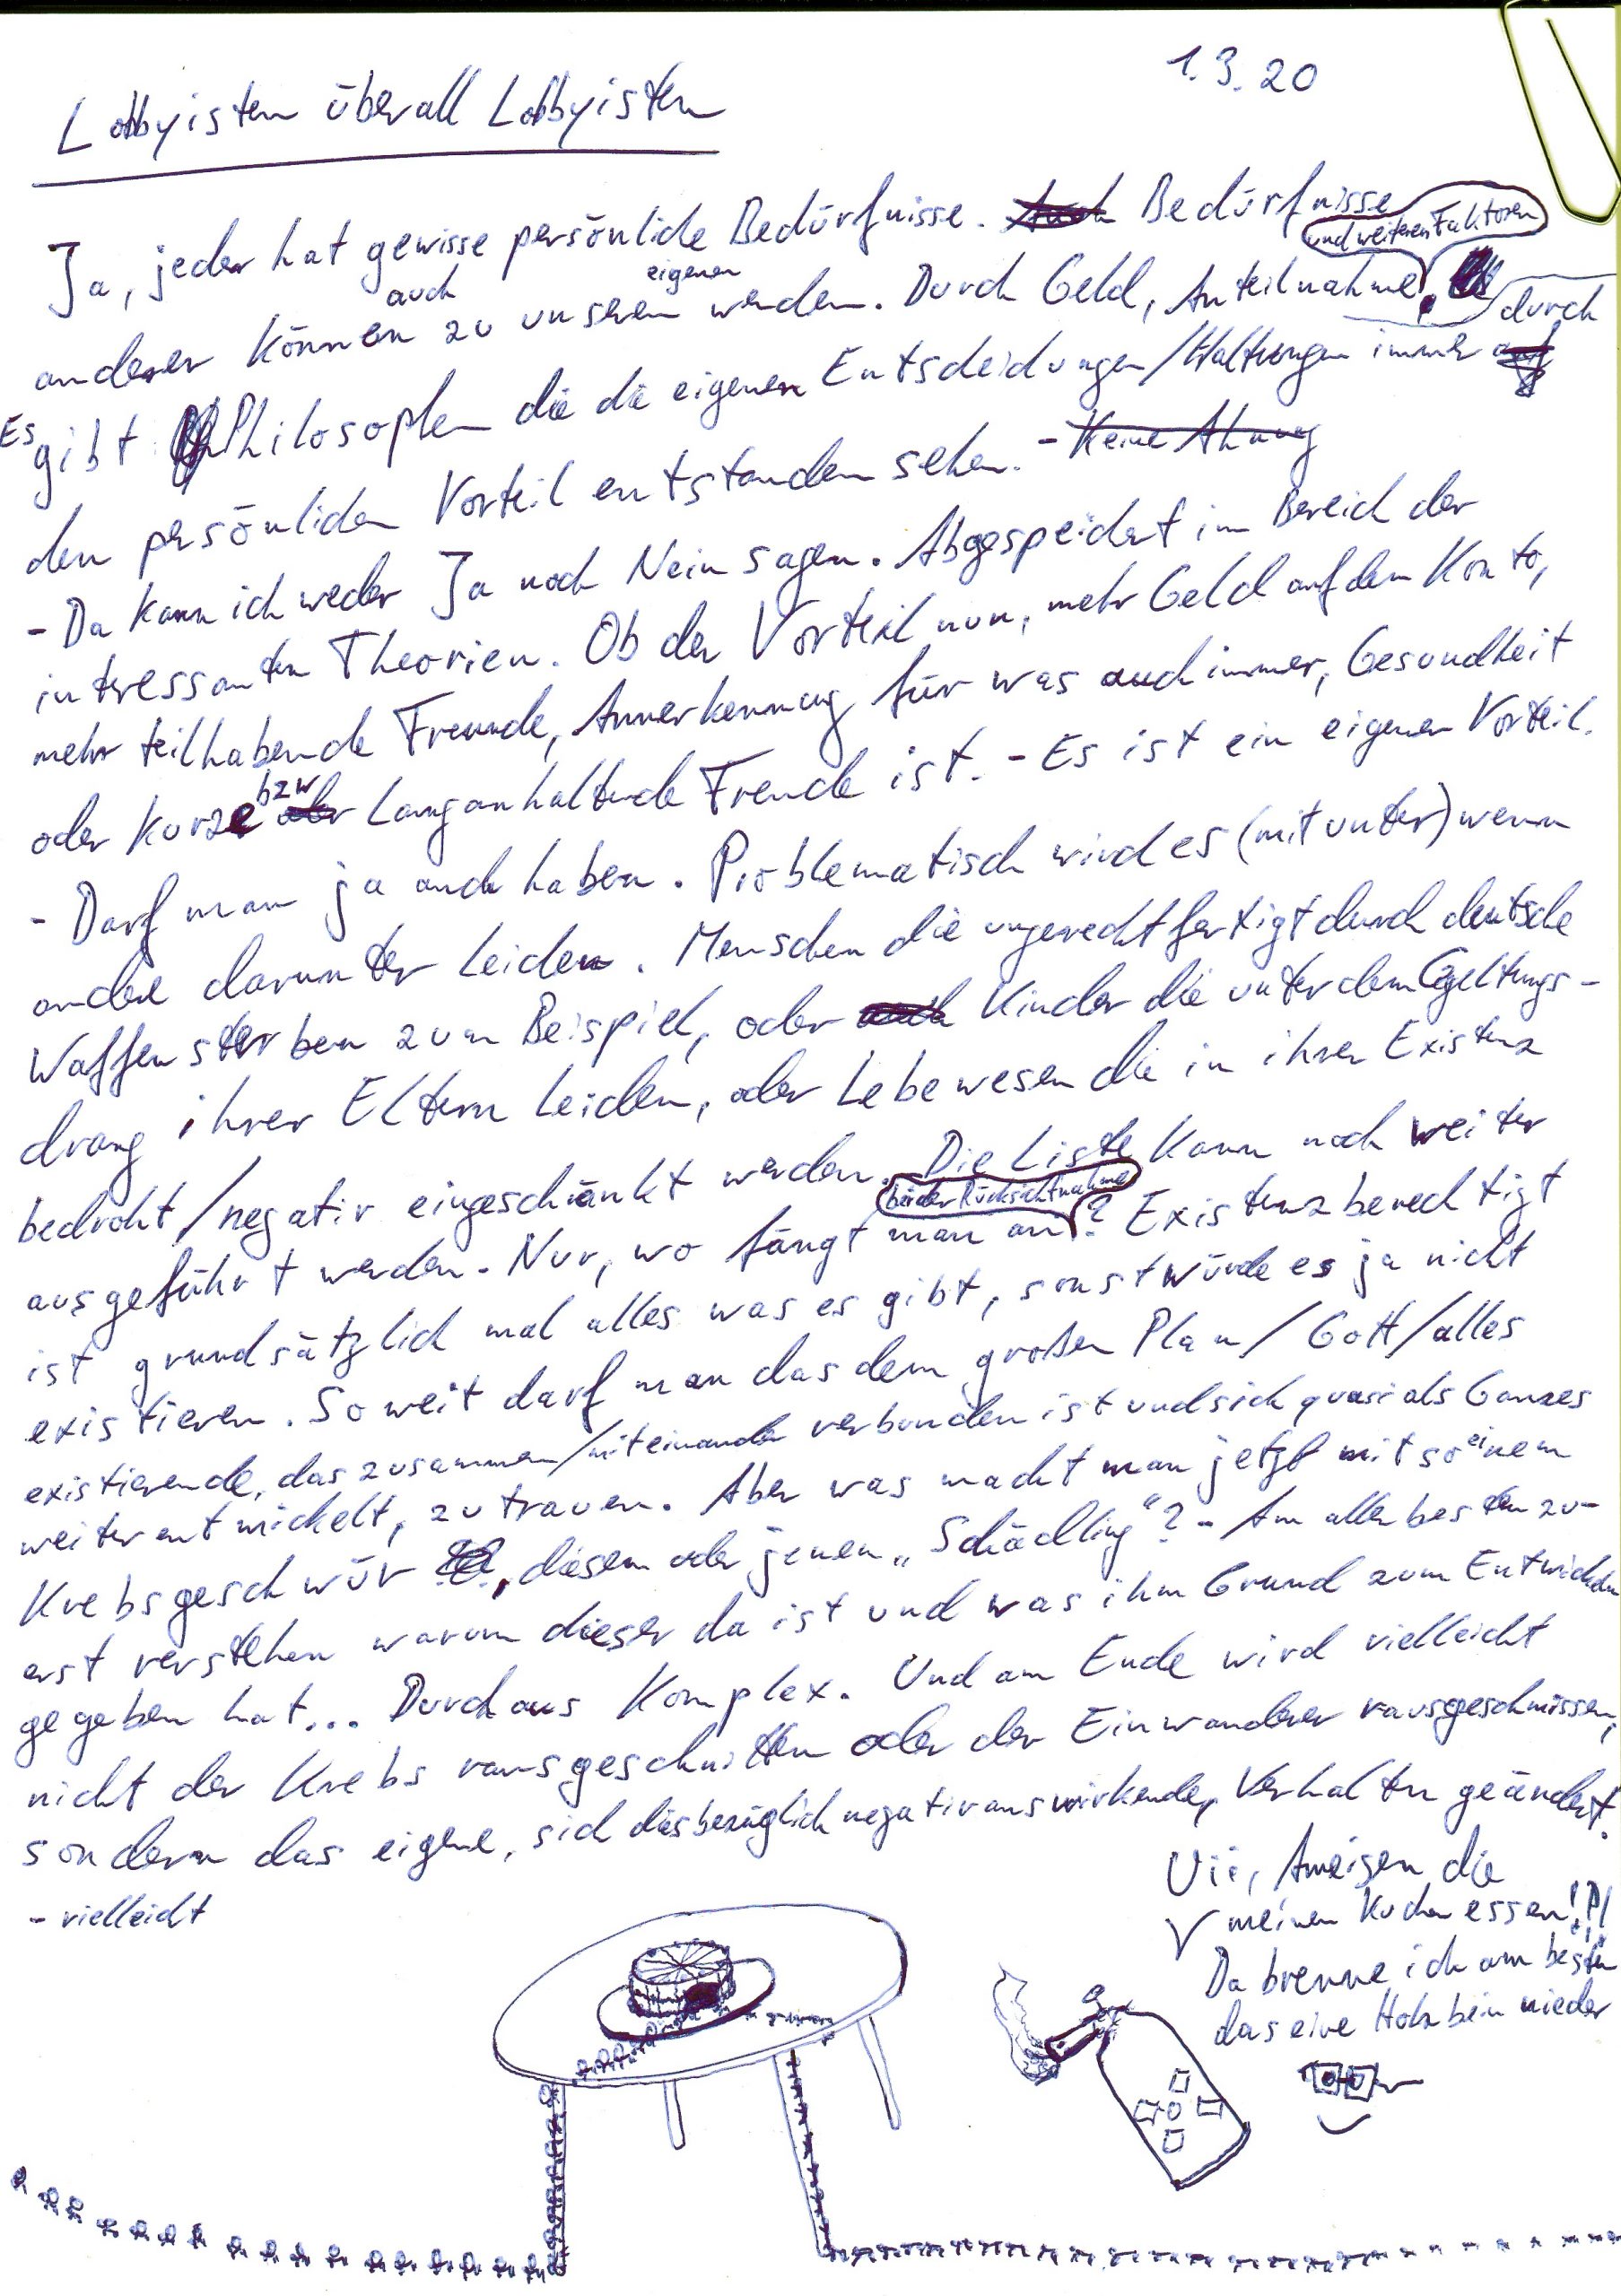 1.3.20
Lobbyisten überall Lobbyisten
Ja, jeder hat gewisse persönliche Bedürfnisse. Auch Bedürfnisse
anderer können auch zu unseren eigenen werden. Durch Geld, Anteilnahme und weiteren Faktoren.
Es gibt Philosophen die die eigenen Entscheidungen/Haltungen immer auf durch
den persönlichen Vorteil entstanden sehen. - Keine Ahnung
- Da kann ich weder Ja noch Nein sagen. Abgespeichert im Bereich der
intressanten Theorien. Ob der Vorteil nun, mehr Geld auf dem Konto,
mehr teilhabende Freunde, Annerkennung für was auch immer, Gesundheit
oder kurze bzw oder Langanhaltende Freude ist. - Es ist ein eigener Vorteil.
- Darf man ja auch haben. Problematisch wird es (mitunter) wenn
andere darunter Leiden. Menschen die ungerechtfertigt durch deutsche
Waffen sterben zum Beispiel, oder auch Kinder die unter dem Geltungs-
drang ihrer Eltern leiden, oder Lebewesen die in ihrer Existenz
bedroht/negativ eingeschränkt werden. Die Liste kann noch weiter
ausgeführt werden. Nur, wo fängt man an bei der Rücksichtnahme? Existenzberechtigt
ist grundsätzlich mal alles was es gibt, sonst würde es ja nicht
existieren. Soweit darf man das dem großen Plan/Gott/alles
existierende, das zusammen/miteinander verbunden ist und sich quasi als Ganzes
weiterentwickelt, zutrauen. Aber was macht man jetzt mit so einem
Krebsgeschwür, diesem oder jenem „Schädling“? - Am aller besten zu-
erst verstehen warum dieser da ist und was ihm Grund zum Entwickeln
gegeben hat... Durchaus Komplex. Und am Ende wird vielleicht
nicht der Krebs rausgeschnitten oder der Einwanderer rausgeschmissen,
sondern das eigene, sich diesbezüglich negativ auswirkende, Verhalten geändert.
- vielleicht
Uii, Ameisen die
meinen Kuchen essen!?!
Da brenne ich am besten
das eine Holzbein nieder